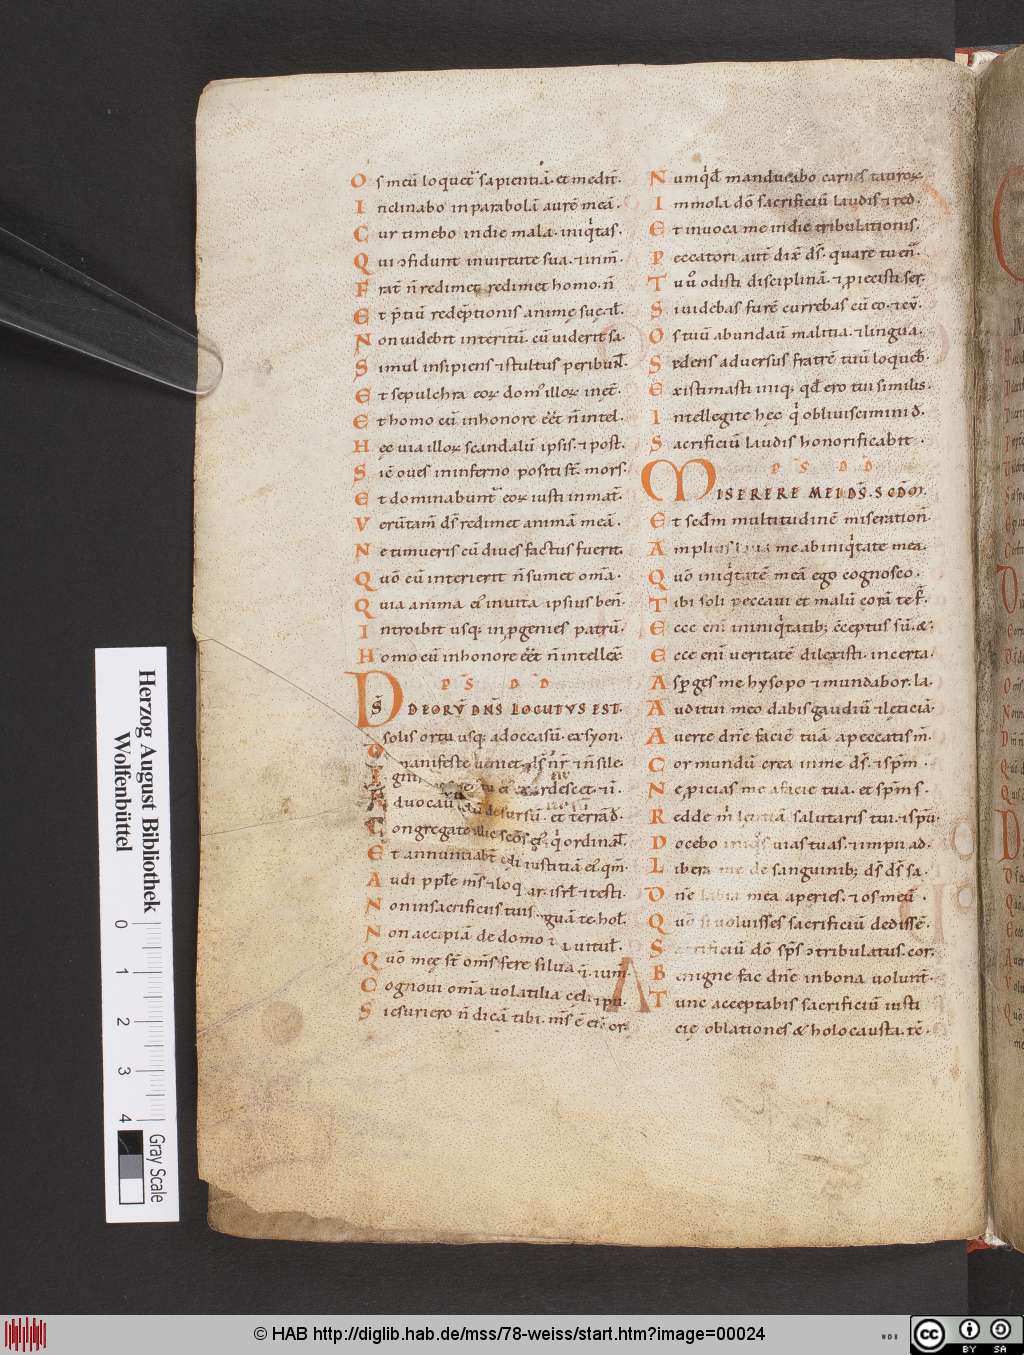 Os meū loquet̄ sapientiā. et medit̄.
Inclinabo in parabolā aurē meā.
Cur timebo in die mala. iniq̇tas.
Qui ↄfidunt in uirtute sua. ⁊ inm̄.
Frat̄ n̄ redimet, redimet homo. n̄
Et p̄tiū redēptionis animę suę. ⁊l̄
Non uidebit interitū. cū uiderit sa.
Simul insipiens ⁊ stultus peribun̄t
Et sepulchra eoꝝ domꝰ illoꝝ inęt̄.
Et homo cū in honore eēt n̄ intel.
Hęc uia illoꝝ scandalū ipsis. ⁊ post̄.
Sic̄ oues in inferno positi st̄. mors.
Et dominabunt̄ eoꝝ iusti in mat̄.
Verūtam̄ dš redimet animā meā.
Ne timueris cū diues factus fuerit.
Quō cū interierit n̄ sumet om̄a.
Quia anima eiꝰ in uita ipsius ben̄.
Introibit usq; in ꝓgenies patrū.
Homo cū in honore eēt n̄ intellex̄
PS DD
Dš DEORV̄ DN̄S LOCUTVS EST.
solis ortu usq; ad occasū. ex syon.
manifeste ueniet. dš nr̄ ⁊ n̄ sile
ardescet. ⁊ī.
duocau desursū. et terrā d̄.
Congregate illic sc̄os eiꝰ. q̇ ordinan̄t
Et annuntiabt̄ cęli iustitiā eiꝰ. qm̄.
Audi pple m̄s ⁊ loq ar. isrl̄ ⁊ testi.
Non in sacrificiis tuis guā te. hol̄.
Non accipiā de domo t uitul̄.
Quō męę st̄ om̄s ferę siluaꝝ. ium̄.
Cognoui om̄a uolatilia cęli ⁊ pu.
Si esuriero n̄ dicā tibi. m̄s ē en̄ or.
Numq̇d māducabo carnes tauroꝝ
Immola dō sacrificiū laudis ⁊ red̄.
Et inuoca me in die tribulationis.
Peccatori aut̄ dix̄ dš. quare tu en̄.
Tu ů odisti disciplinā. ⁊ ꝓiecisti ser.
Si uidebas furē currebas cū eo. ⁊ cū.
Os tuū abundau̅ malitia. ⁊ lingua.
Sedens aduersus fratrē tuū loqueb̄.
Existimasti iniq; qd̄ ero tui similis.
Intellegite hęc q̇ obliuiscimini d̄.
Sacrificiū laudis honorificabit.
PS DD
MISERERE MEI DŠ. SCD̄M.
Et scd̄m multitudinē miseration̄.
Amplius laua me ab iniq̇tate mea.
Quō iniq̇tatē meā ego cognosco.
Tibi soli peccaui et malū corā te f̄.
Ecce eni̅ in iniq̇tatib; cceptus sū. &.
Ecce eni̅ ueritatē dilexisti. incerta
Asp̄ges me hysopo ⁊ mundabor. la.
Auditui meo dabis gaudiū ⁊ leticiā.
Auerte dn̄e faciē tuā a peccatis m̄.
Cor mundū crea in me dš. ⁊ sp̄m.
Ne ꝓicias me a facie tua. et sp̄m s.
Redde m̄ lętitiā salutaris tui. ⁊ spū.
Docebo iniq̇s uias tuas. ⁊ impii ad.
Libera me de sanguinib; dš dš sa.
Dn̄e labia mea aperies. ⁊ os meū.
Quō si uoluisses sacrificiū dedissē.
Sacrificiū dō sp̄s ↄtribulatus. cor.
Benigne fac dn̄e in bona uolunt̄.
Tunc acceptabis sacrificiū iusti
cię oblationes & holocausta. tc̄.
Herzog August Bibliothek
Wolfenbüttel
0 1 2 3 4
Gray Scale
© HAB http://diglib.hab.de/mss/78-weiss/start.htm?image=00024
WDB
cc BY SA